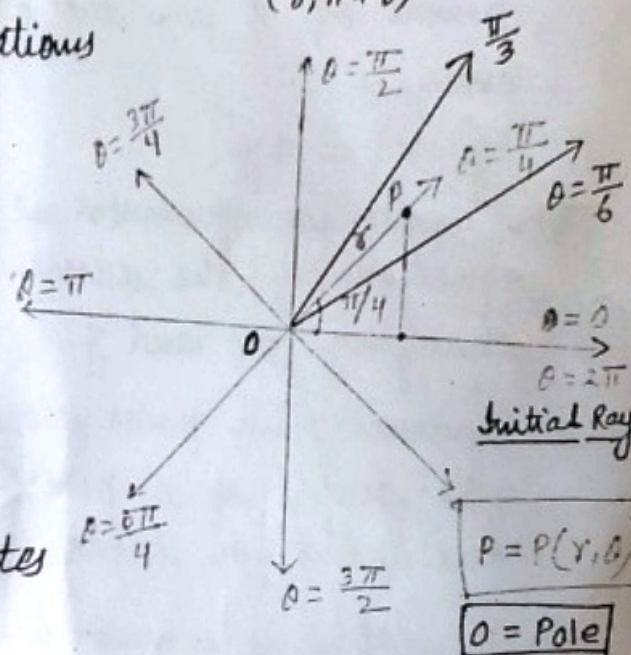 (r, π + θ)
tions
θ = π/2
π/3
θ = 3π/4
θ = π/4
P
θ = π/6
r
θ = π
π/4
O
θ = 0
θ = 2π
Initial Ray
θ = 5π/4
tes
P = P(r, θ)
θ = 3π/2
O = Pole